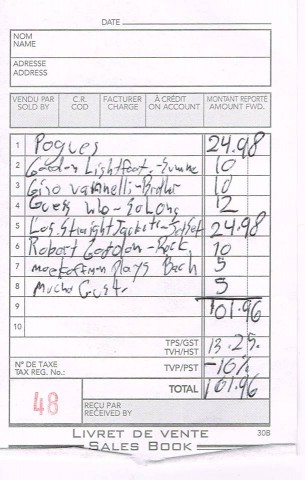 DATE
NOM
NAME
ADRESSE
ADDRESS
VENDU PAR SOLD BY
C.R. COD
FACTURER CHARGE
À CRÉDIT ON ACCOUNT
MONTANT REPORTÉ AMOUNT FWD.
1 Pogues 24.98
2 Gordon Lightfoot - 10
3 Gino Vannelli - 10
4 Guess Who - So Long 12
5 Los Straight Jackets - 24.98
6 Robert Gordon - Rock 10
7 Plays Bach 5
8 Mucho 5
9 101.96
10
TPS/GST TVH/HST 13.25
N° DE TAXE TAX REG. No.: TVP/PST -10%
TOTAL 101.96
48 REÇU PAR RECEIVED BY
LIVRET DE VENTE 30B
SALES BOOK